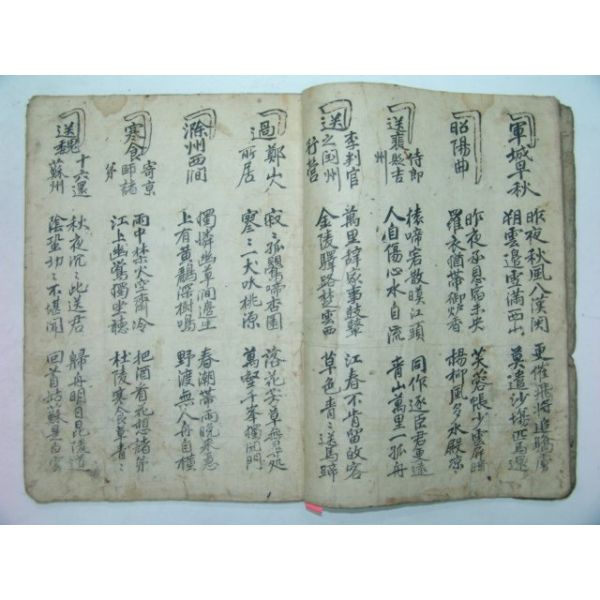 軍城早秋
昨夜秋風入漢関
朔雲邊雪滿西山
更催飛將追驕虜
莫遣沙塲匹馬還
昭陽曲
昨夜承恩宿未央
羅衣猶帶御炉香
芙蓉帳少雲屏暗
楊柳風多水殿凉
送裴侍郎貶吉州
猿啼客散暮江頭
人自傷心水自流
同作逐臣君更遠
青山萬里一孤舟
送李判官之潤州行營
萬里辞家事鼓鼙
金陵驛路楚雲西
江春不肯留故客
草色青〻送馬蹄
過鄭山人所居
寂〻孤鶯啼杏園
寥〻一犬吠桃源
落花芳草無尋処
萬壑千峯獨閉門
滁州西澗
獨憐幽草澗邊生
上有黃鸝深樹鳴
春潮帶雨晚来急
野渡無人舟自橫
寒食寄京師諸弟
雨中禁火空齋冷
江上幽鶯獨坐聴
把酒看花想諸弟
杜陵寒食草青〻
送魏十六還蘇州
秋夜沉〻此送君
陰蛩切〻不堪聞
歸舟明日毘陵道
回首姑蘇是白雲